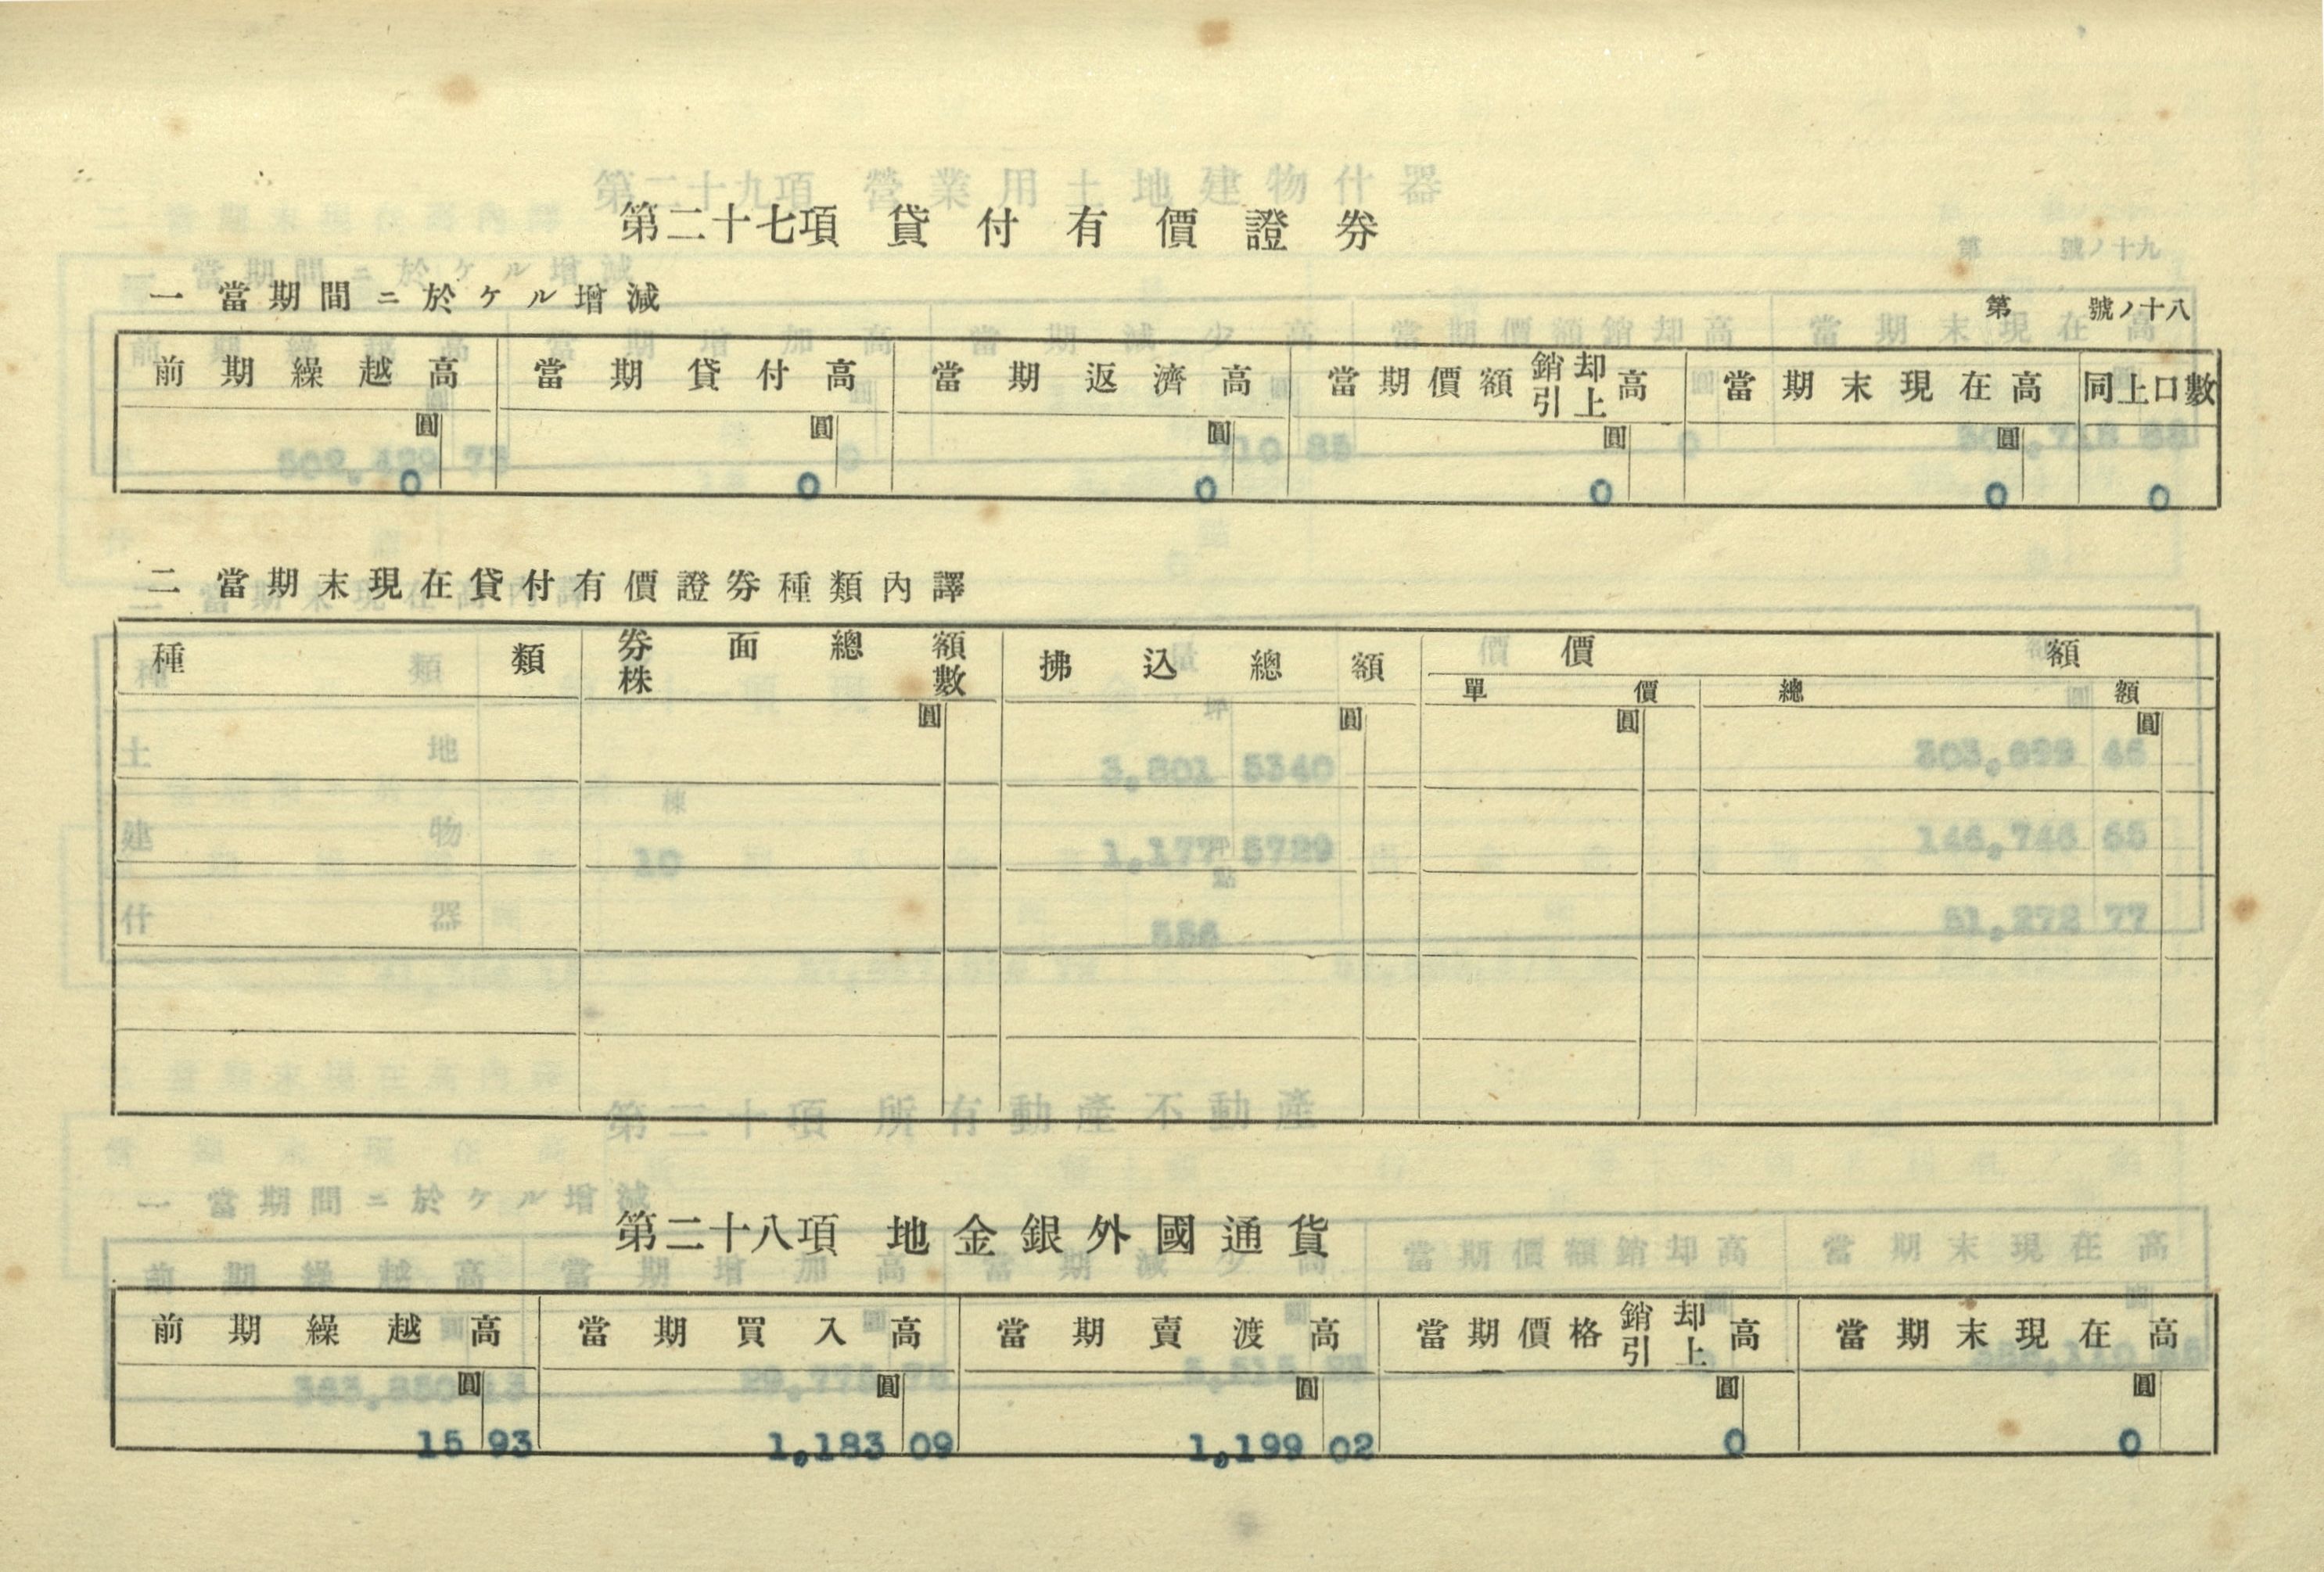 第二十七項 貸付有價證券
一 當期間ニ於ケル增減
第 號ノ十八
前期繰越高 當期貸付高 當期返濟高 當期價額銷却引上高 當期末現在高 同上口數
圓 圓 圓 圓 圓
0 0 0 0 0 0
二 當期末現在貸付有價證券種類內譯
種類 券面總額株數 拂込總額 價額
單價 總額
圓 圓 圓 圓
第二十八項 地金銀外國通貨
前期繰越高 當期買入高 當期賣渡高 當期價格銷却引上高 當期末現在高
圓 圓 圓 圓 圓
15 93 1,183 09 1,199 02 0 0